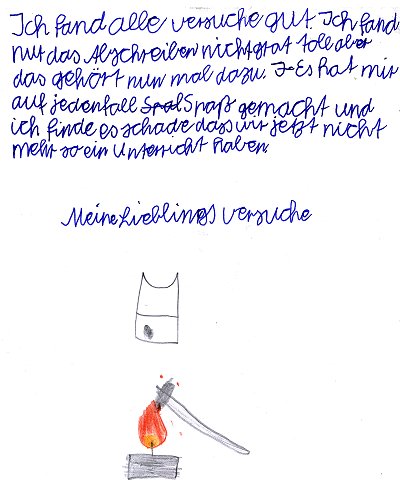 Ich fand alle versuche gut. Ich fand
nur das Abschreiben nicht grat toll aber
das gehört nun mal dazu. Es hat mir
auf jedenfall Spaß gemacht und
ich finde es schade dass wir jetzt nicht
mehr so ein Unterricht haben.
Meine Lieblings versuche